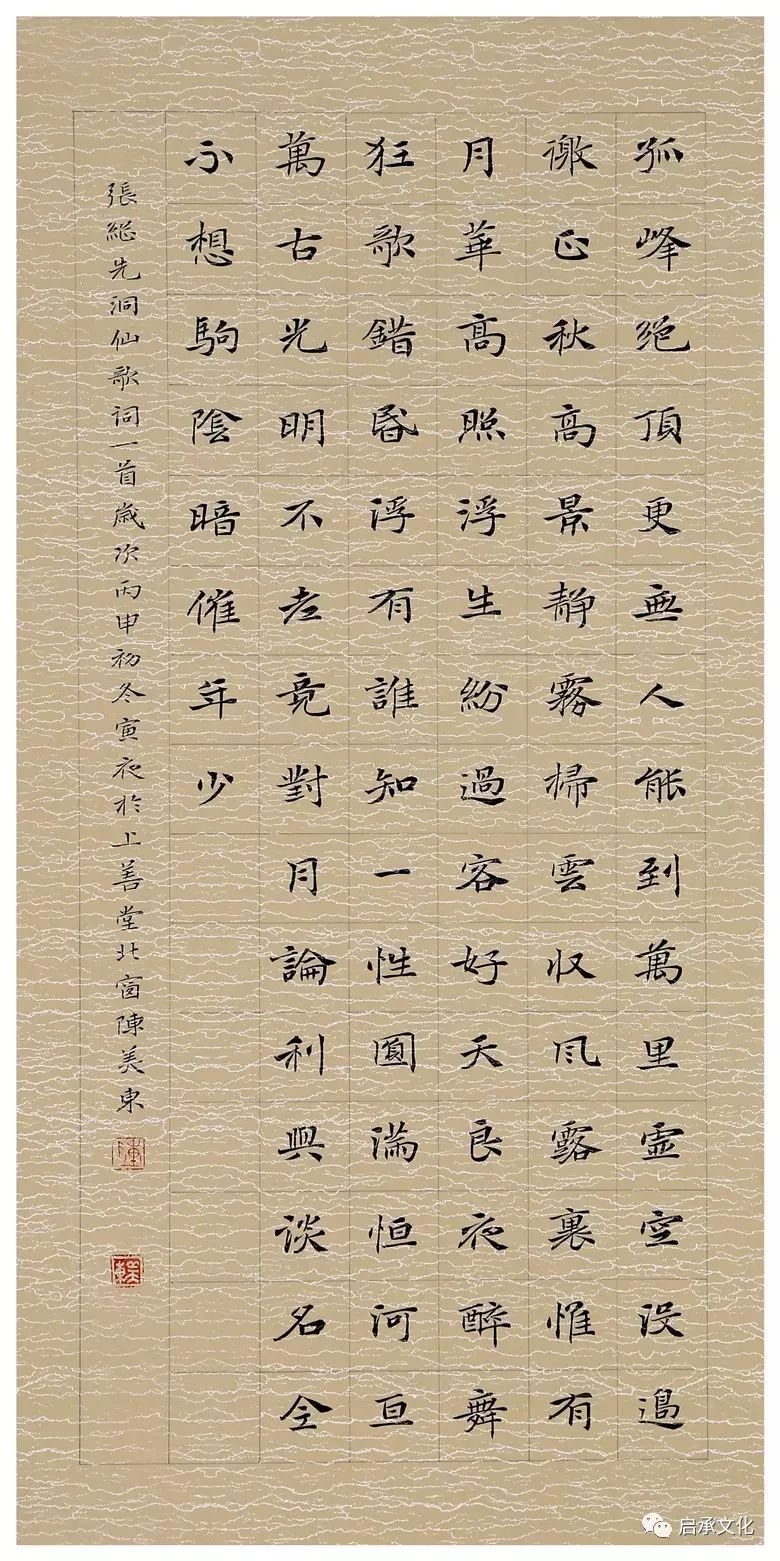 孤峰絶頂更無人能到萬里虛空没邉
徼正秋高景静霧掃雲収風露裏惟有
月華高照浮生紛過客好天良夜醉舞
狂歌錯昏浮有誰知一性圓滿恒河亘
萬古光明不老竟對月論利興談名全
不想駒陰暗催年少
張継先洞仙歌词一首歲次丙申初冬寅夜於上善堂北窗陳美東
启承文化